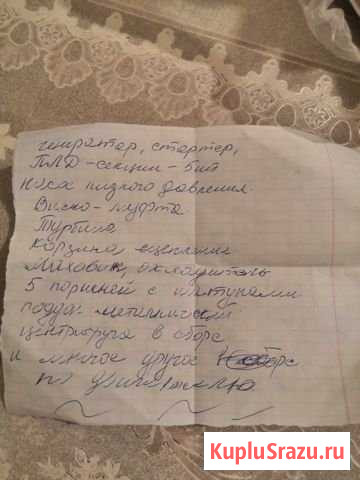 генратор, стартер,
ПЛД-секции-5шт
насос низкого давления
Виско-муфта
Турбина
Корзина сцепления
Маховик, охладитель
5 поршней с шатунами
поддон металический
центрифуга в сборе
и многое другое
по двигателю
KupluSrazu.ru